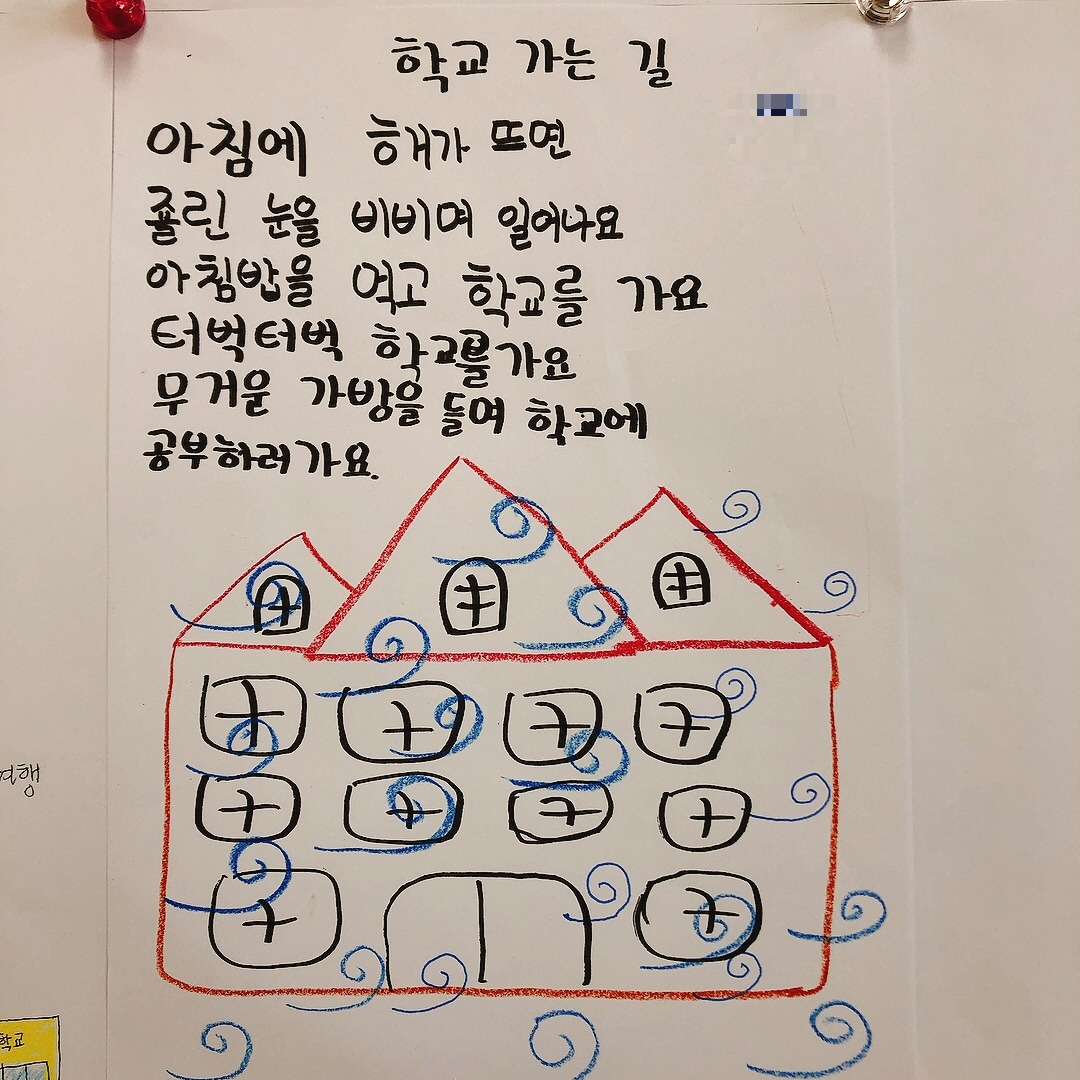 학교 가는 길
아침에 해가 뜨면
졸린 눈을 비비며 일어나요
아침밥을 먹고 학교를 가요
터벅터벅 학교를 가요
무거운 가방을 들며 학교에
공부하러 가요.
학교